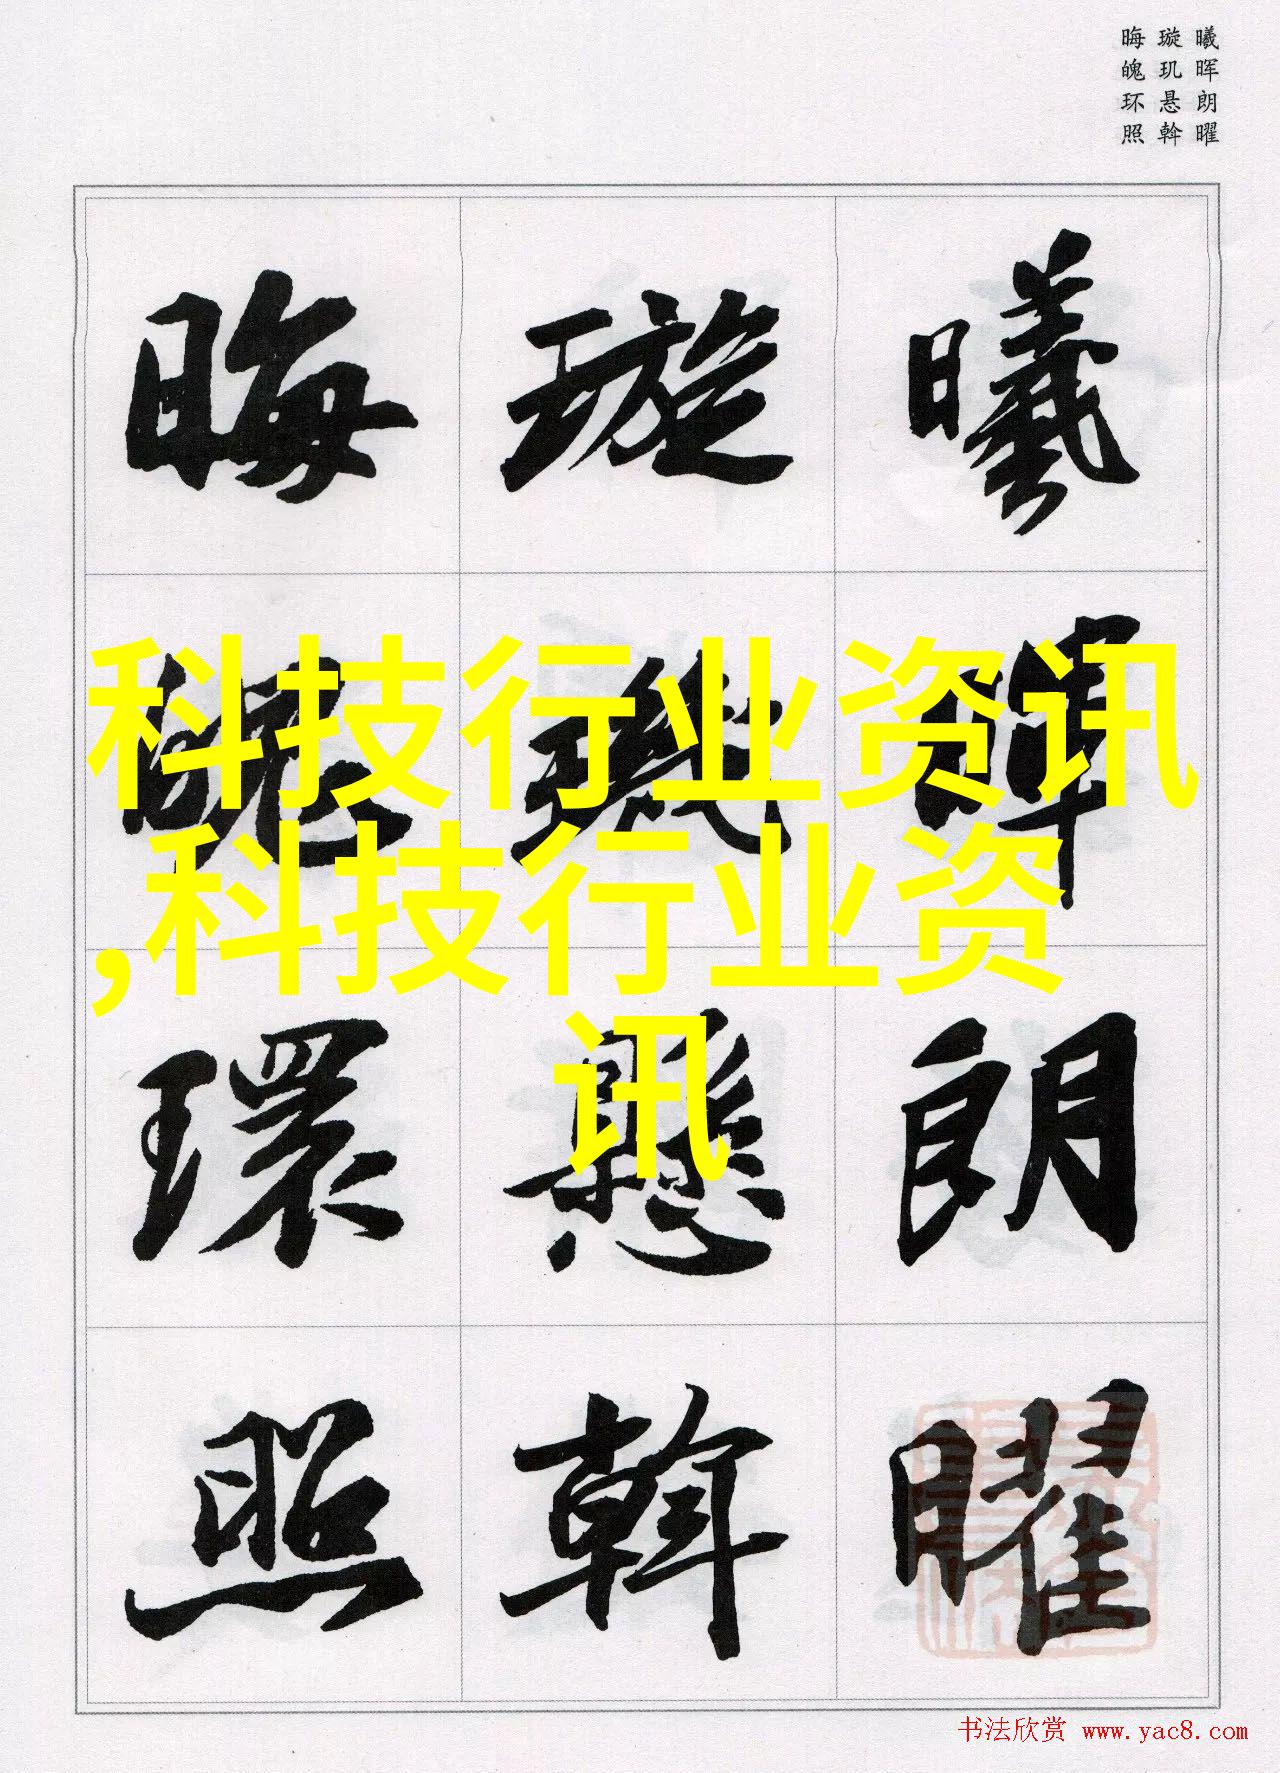 曦晖朗曜
璇玑悬斡
晦魄环照
曦暉朗曜
璇璣懸斡
晦魄環照
科技行业资讯
,科技行业资
讯
书法欣赏 www.yac8.com